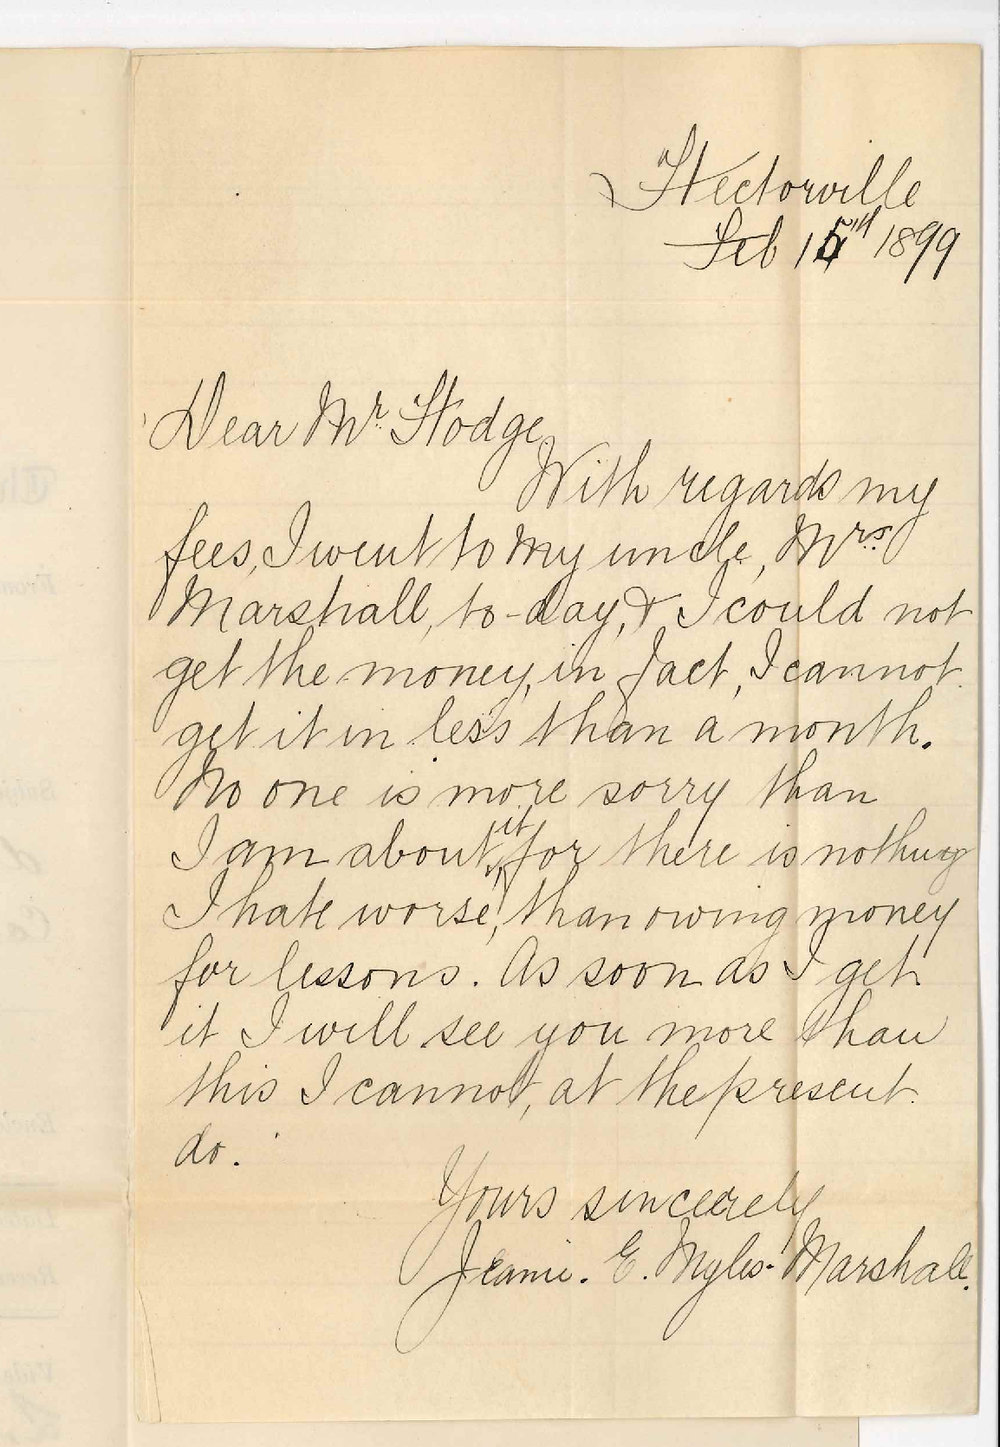 Hectorville
Feb 15th 1899
Dear Mr. Hodge,
With regards my
fees, I went to my uncle, Mrs.
Marshall, to-day, & I could not
get the money, in fact, I cannot
get it in less than a month.
No one is more sorry than
I am about it, for there is nothing
I hate worse, than owing money
for lessons. As soon as I get
it I will see you more than
this I cannot, at the present
do.
Yours sincerely
Jeanie. E. Myles-Marshall.